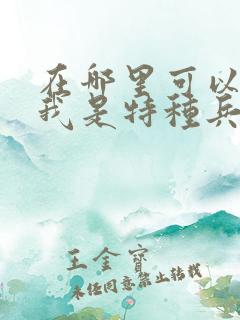 在哪里可以
我是特種兵
王金寶
未经同意禁止转载